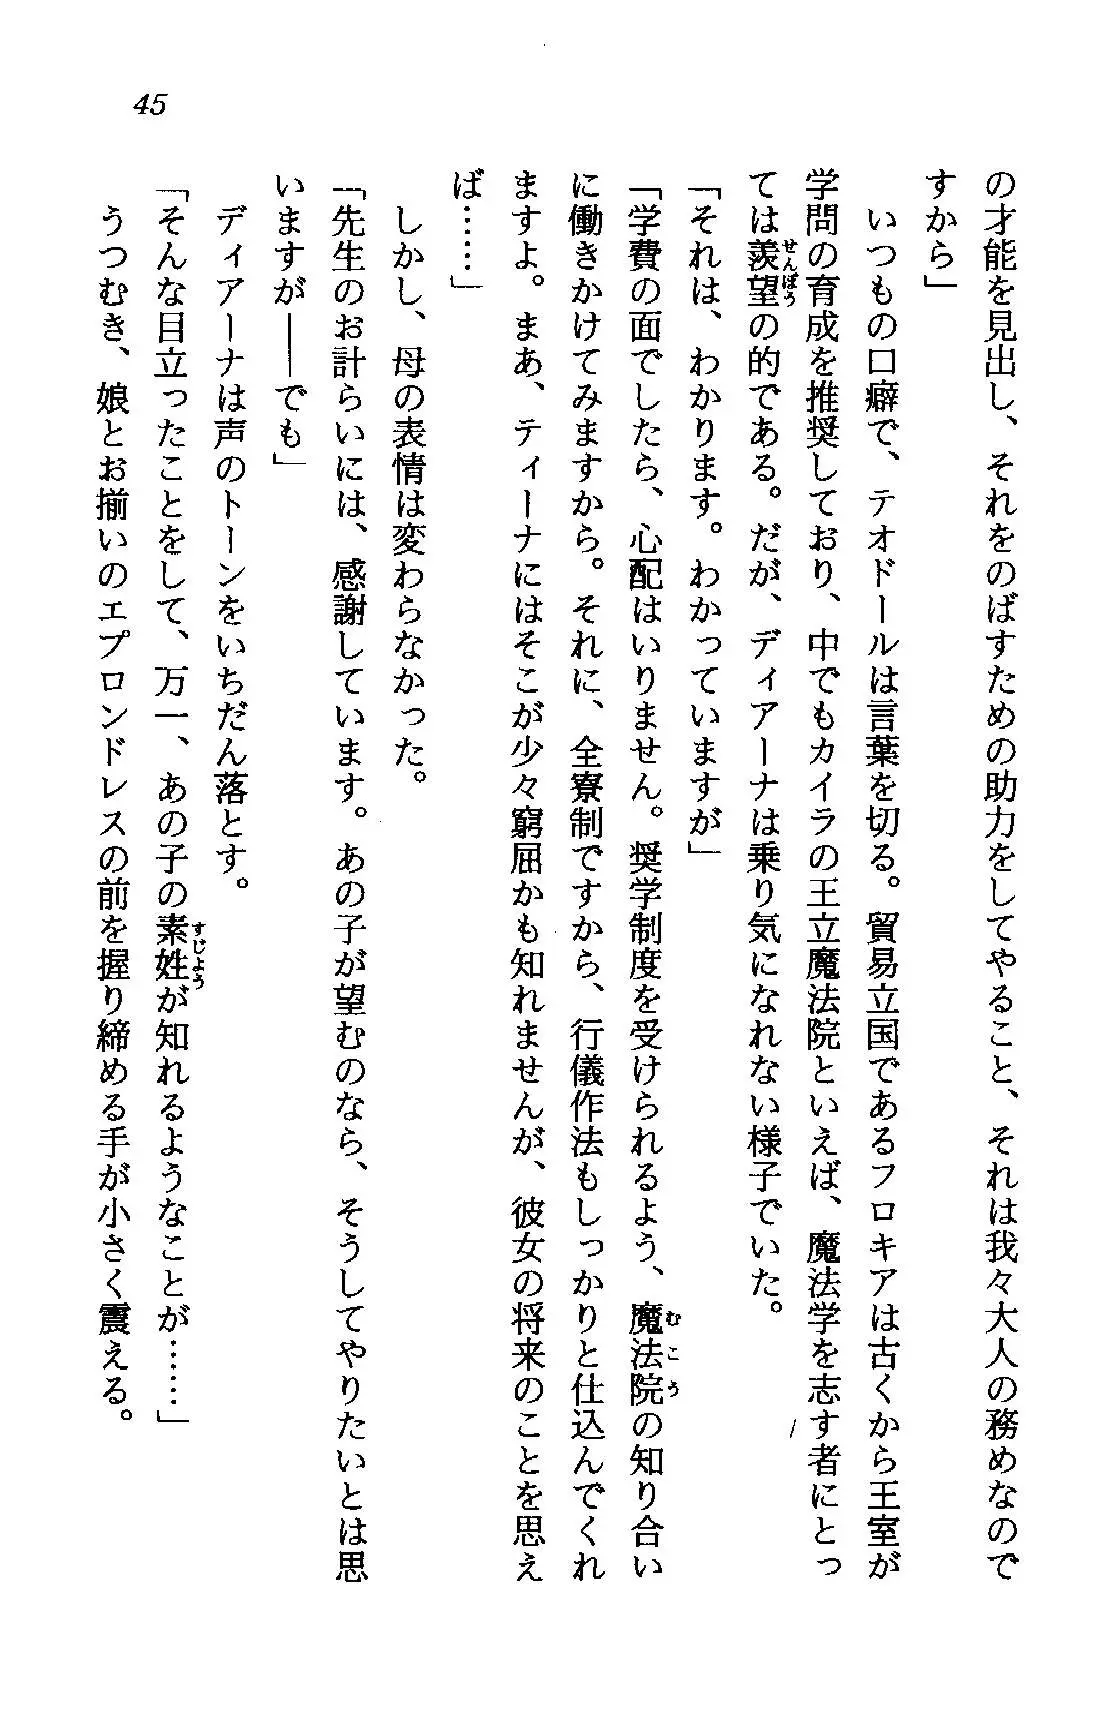 45
の才能を見出し、それをのばすための助力をしてやること、それは我々大人の務めなので
すから」
いつもの口癖で、テオドールは言葉を切る。貿易立国であるフロキアは古くから王室が
学問の育成を推奨しており、中でもカイラの王立魔法院といえば、魔法学を志す者にとっ
ては羨望の的である。だが、ディアーナは乗り気になれない様子でいた。
せんぼう
「それは、わかります。わかっていますが」
「学費の面でしたら、心配はいりません。奨学制度を受けられるよう、魔法院の知り合い
むこう
に働きかけてみますから。それに、全寮制ですから、行儀作法もしっかりと仕込んでくれ
ますよ。まあ、ティーナにはそこが少々窮屈かも知れませんが、彼女の将来のことを思え
ば……」
しかし、母の表情は変わらなかった。
「先生のお計らいには、感謝しています。あの子が望むのなら、そうしてやりたいとは思
いますが――でも」
ディアーナは声のトーンをいちだん落とす。
「そんな目立ったことをして、万一、あの子の素姓が知れるようなことが……」
すじよう
うつむき、娘とお揃いのエプロンドレスの前を握り締める手が小さく震える。